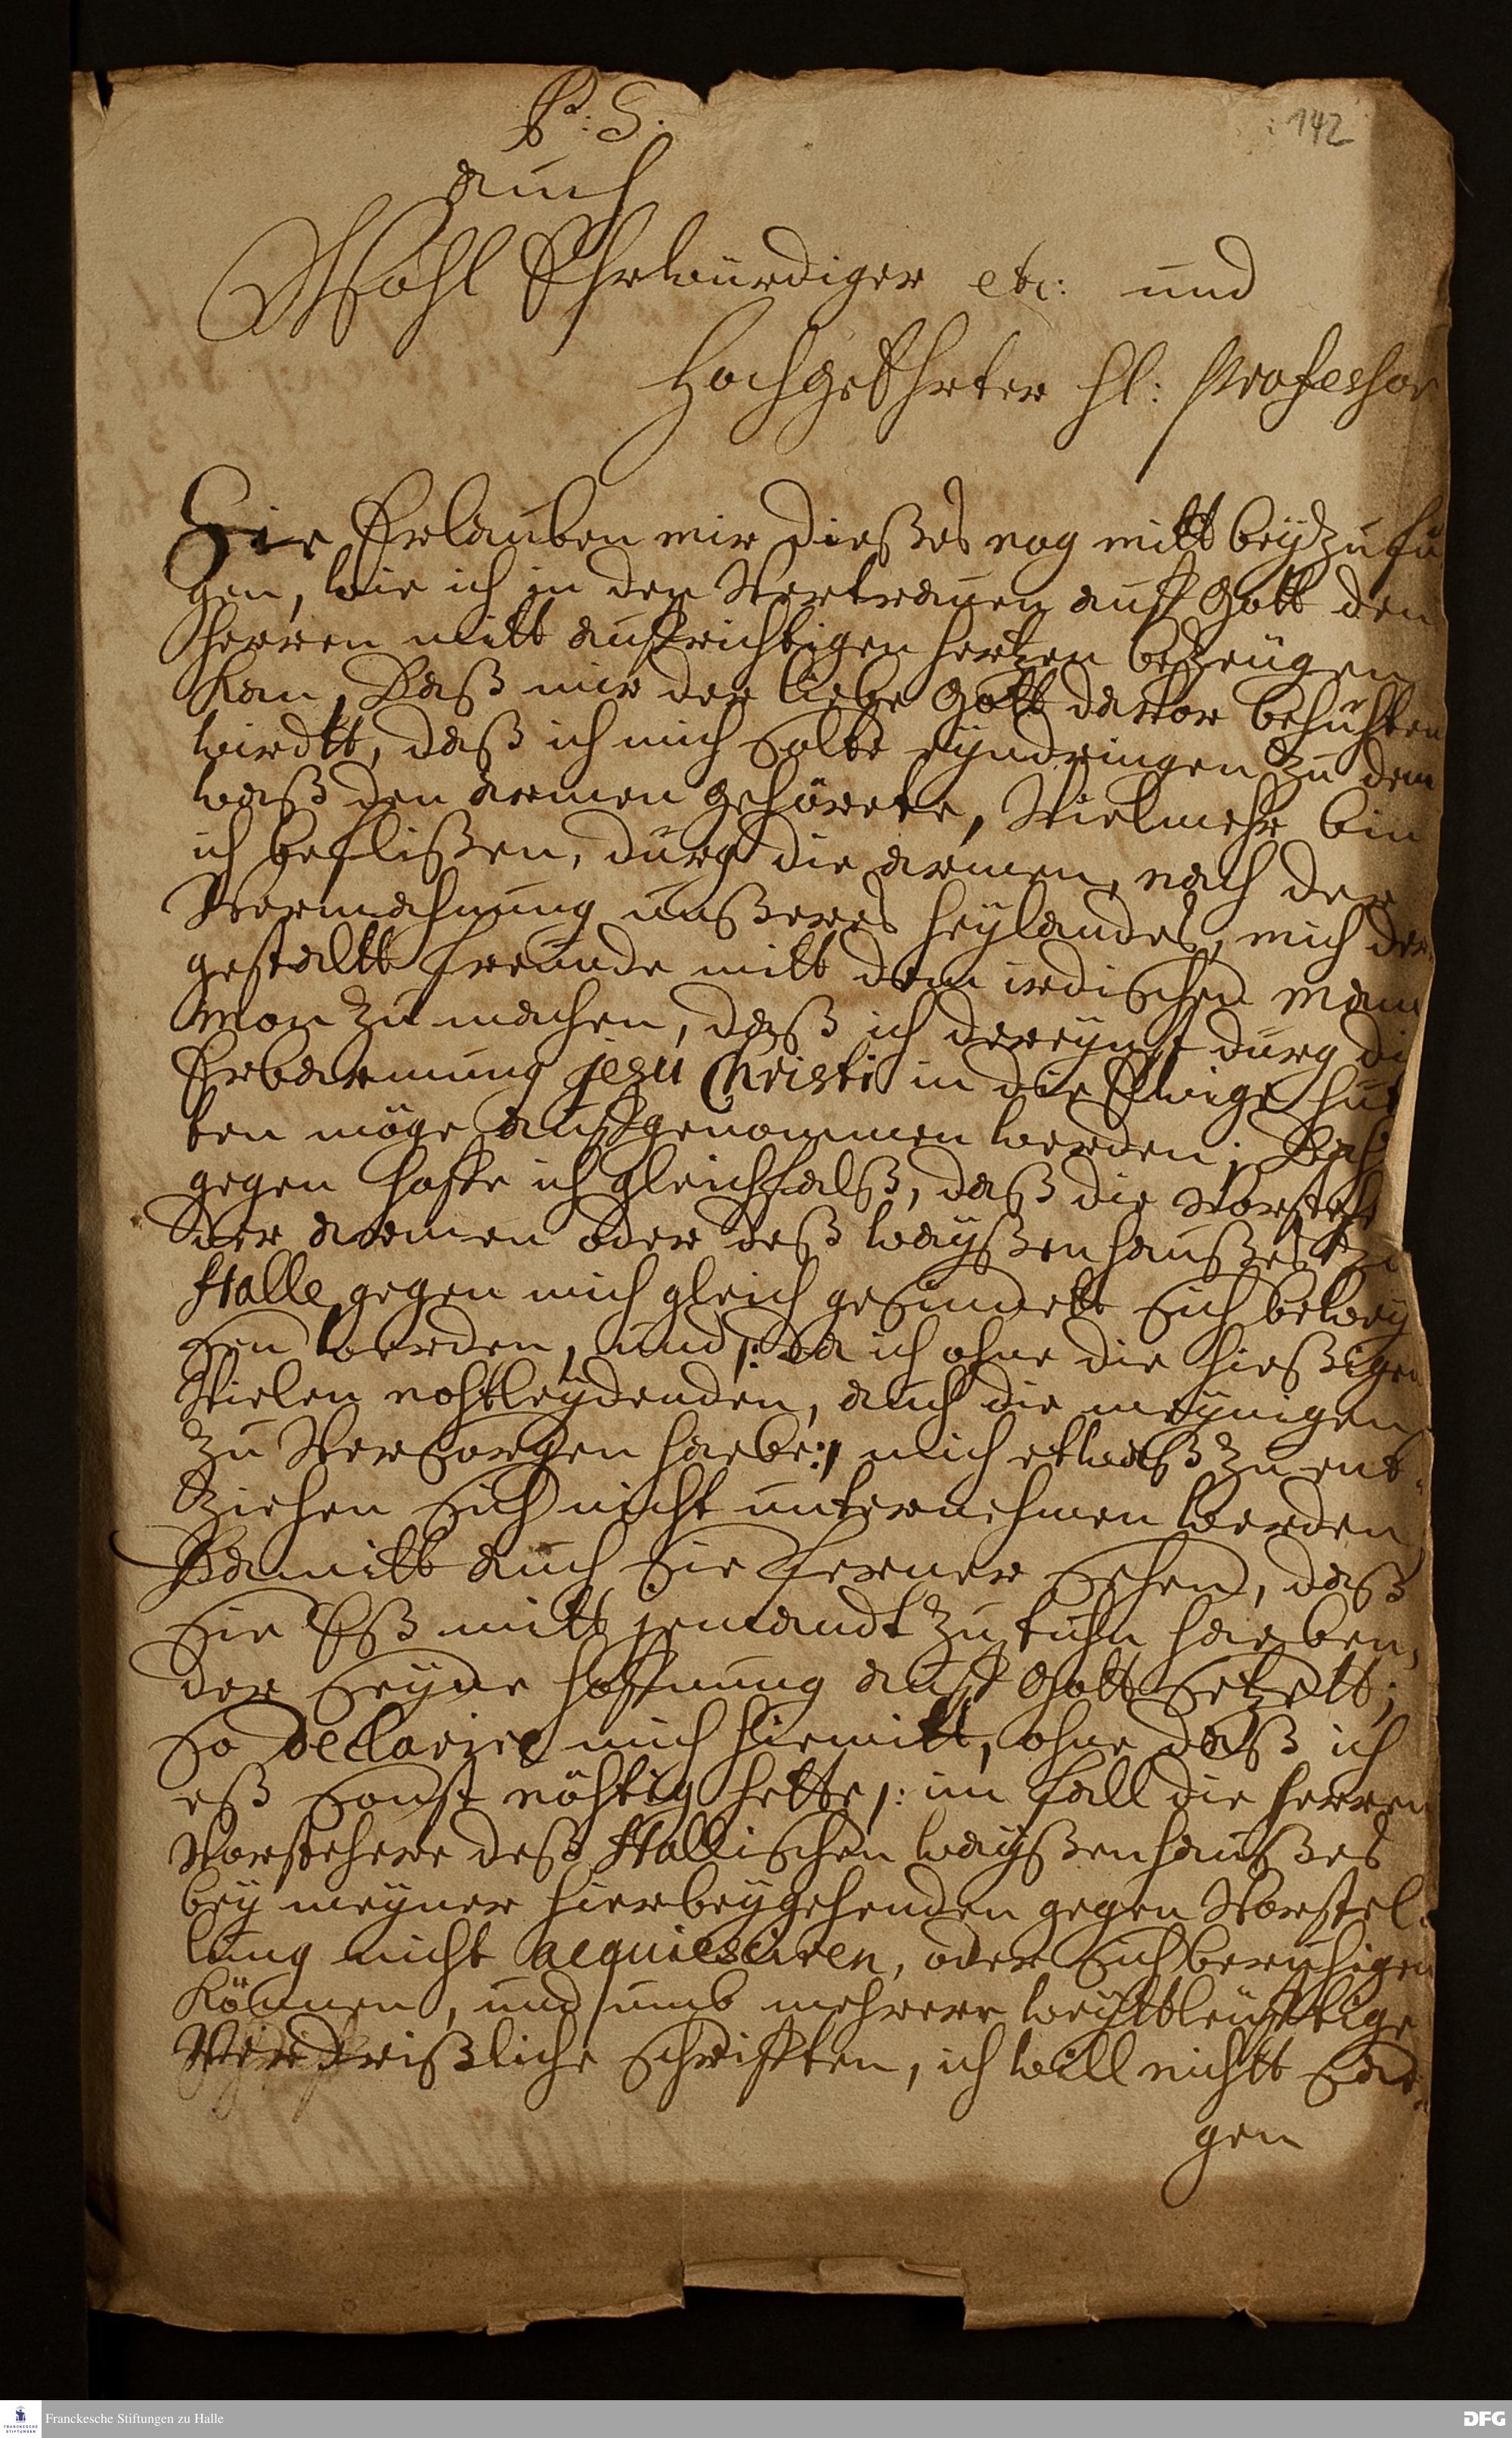 142
P: S.
auch
Wohl Ehrwürdiger etc: und
HochgeEhrter Hl: Professor
Sie Erlauben mir dießes nog mitt beyzufü
gen, wie ich in den Vertrauen auff Gott den
Herren mitt auffrichtigen hertzen bezeugen
kan, Daß mir der liebe Gott darvor behühten
wirdtt, daß ich mich solte eyndringen zu dem
waß den armen gehörete, Vielmehr bin
ich beflißen, durg die armen, nach der
Vermahnung unßeres Heylandes, mich der
gestaltt freunde mitt dem irdischen Mam
mon zu machen, daß ich dereynst durg di
Erbarmung Jesu Christi in die Ewige hut
ten möge auffgenommen werden; Dah
gegen hoffe ich gleichfalß, daß die Vorsteh
der armen oder deß wayßenhaußes zu
Halle gegen mich gleich gesinnett sich bewey
sen werden, und /: da ich ohne die hießigen
Vielen nohtleydenden, auch die meynigen
zu Versorgen haebe :/ mich etwaß zu ent-
ziehen sich nicht unternehmen werden,
Damitt auch sie ferner sehen, daß
sie Eß mitt jemandt zu tuhn haeben,
der seyne hoffnung auff Gott setzett;
So declarire mich hiemitt, ohne daß ich
eß sonst nöhtig hette /: im fall die Herren
Vorstehere deß Hallischen wayßenhaußes
bey meyner hierbeygehenden gegen Vorstel-
lung nicht acquiesciren, oder sich beruhigen
können, und umb mehrere weittleüfftige
Verdrißliche schrifften, ich will nichtt sae-
gen
Franckesche Stiftungen zu Halle
FRANCKESCHE STIFTUNGEN
DFG